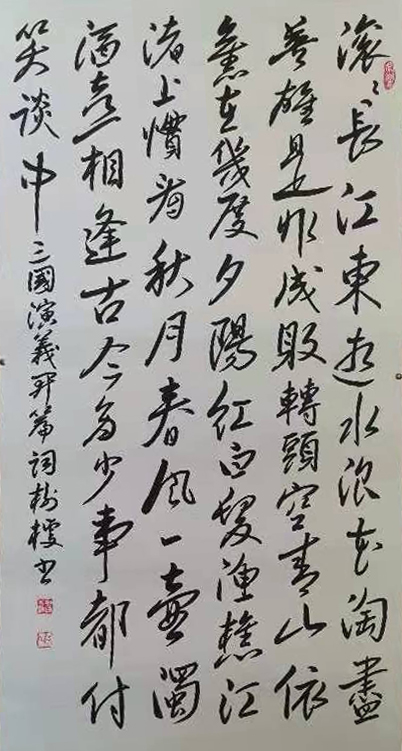 滚〻長江東逝水浪花淘盡
英雄是非成敗轉頭空青山依
舊在幾度夕陽紅白髮漁樵江
渚上慣看秋月春風一壺濁
酒喜相逢古今多少事都付
笑談中 三國演義開篇詞樹書